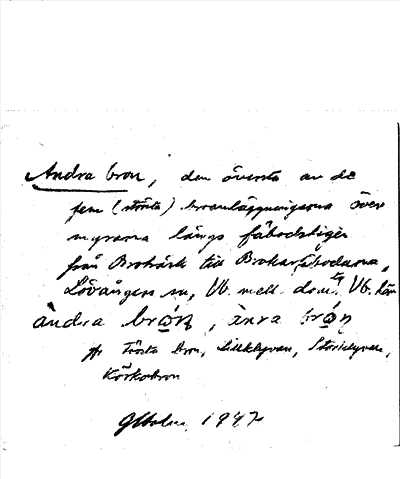 Andra bron, den översta av de
fem (största) broanläggningarna över
myrarna längs fäbodstigen
från Broträsk till Brokarsfäbodarna,
Lövångers sn, Vb. mell. doms. Vb. län
àndra brǫ́n, ànra brǫ́n
jfr Första bron, Lillklyvan, Storklyvan,
Körkobron
Holm. 1947